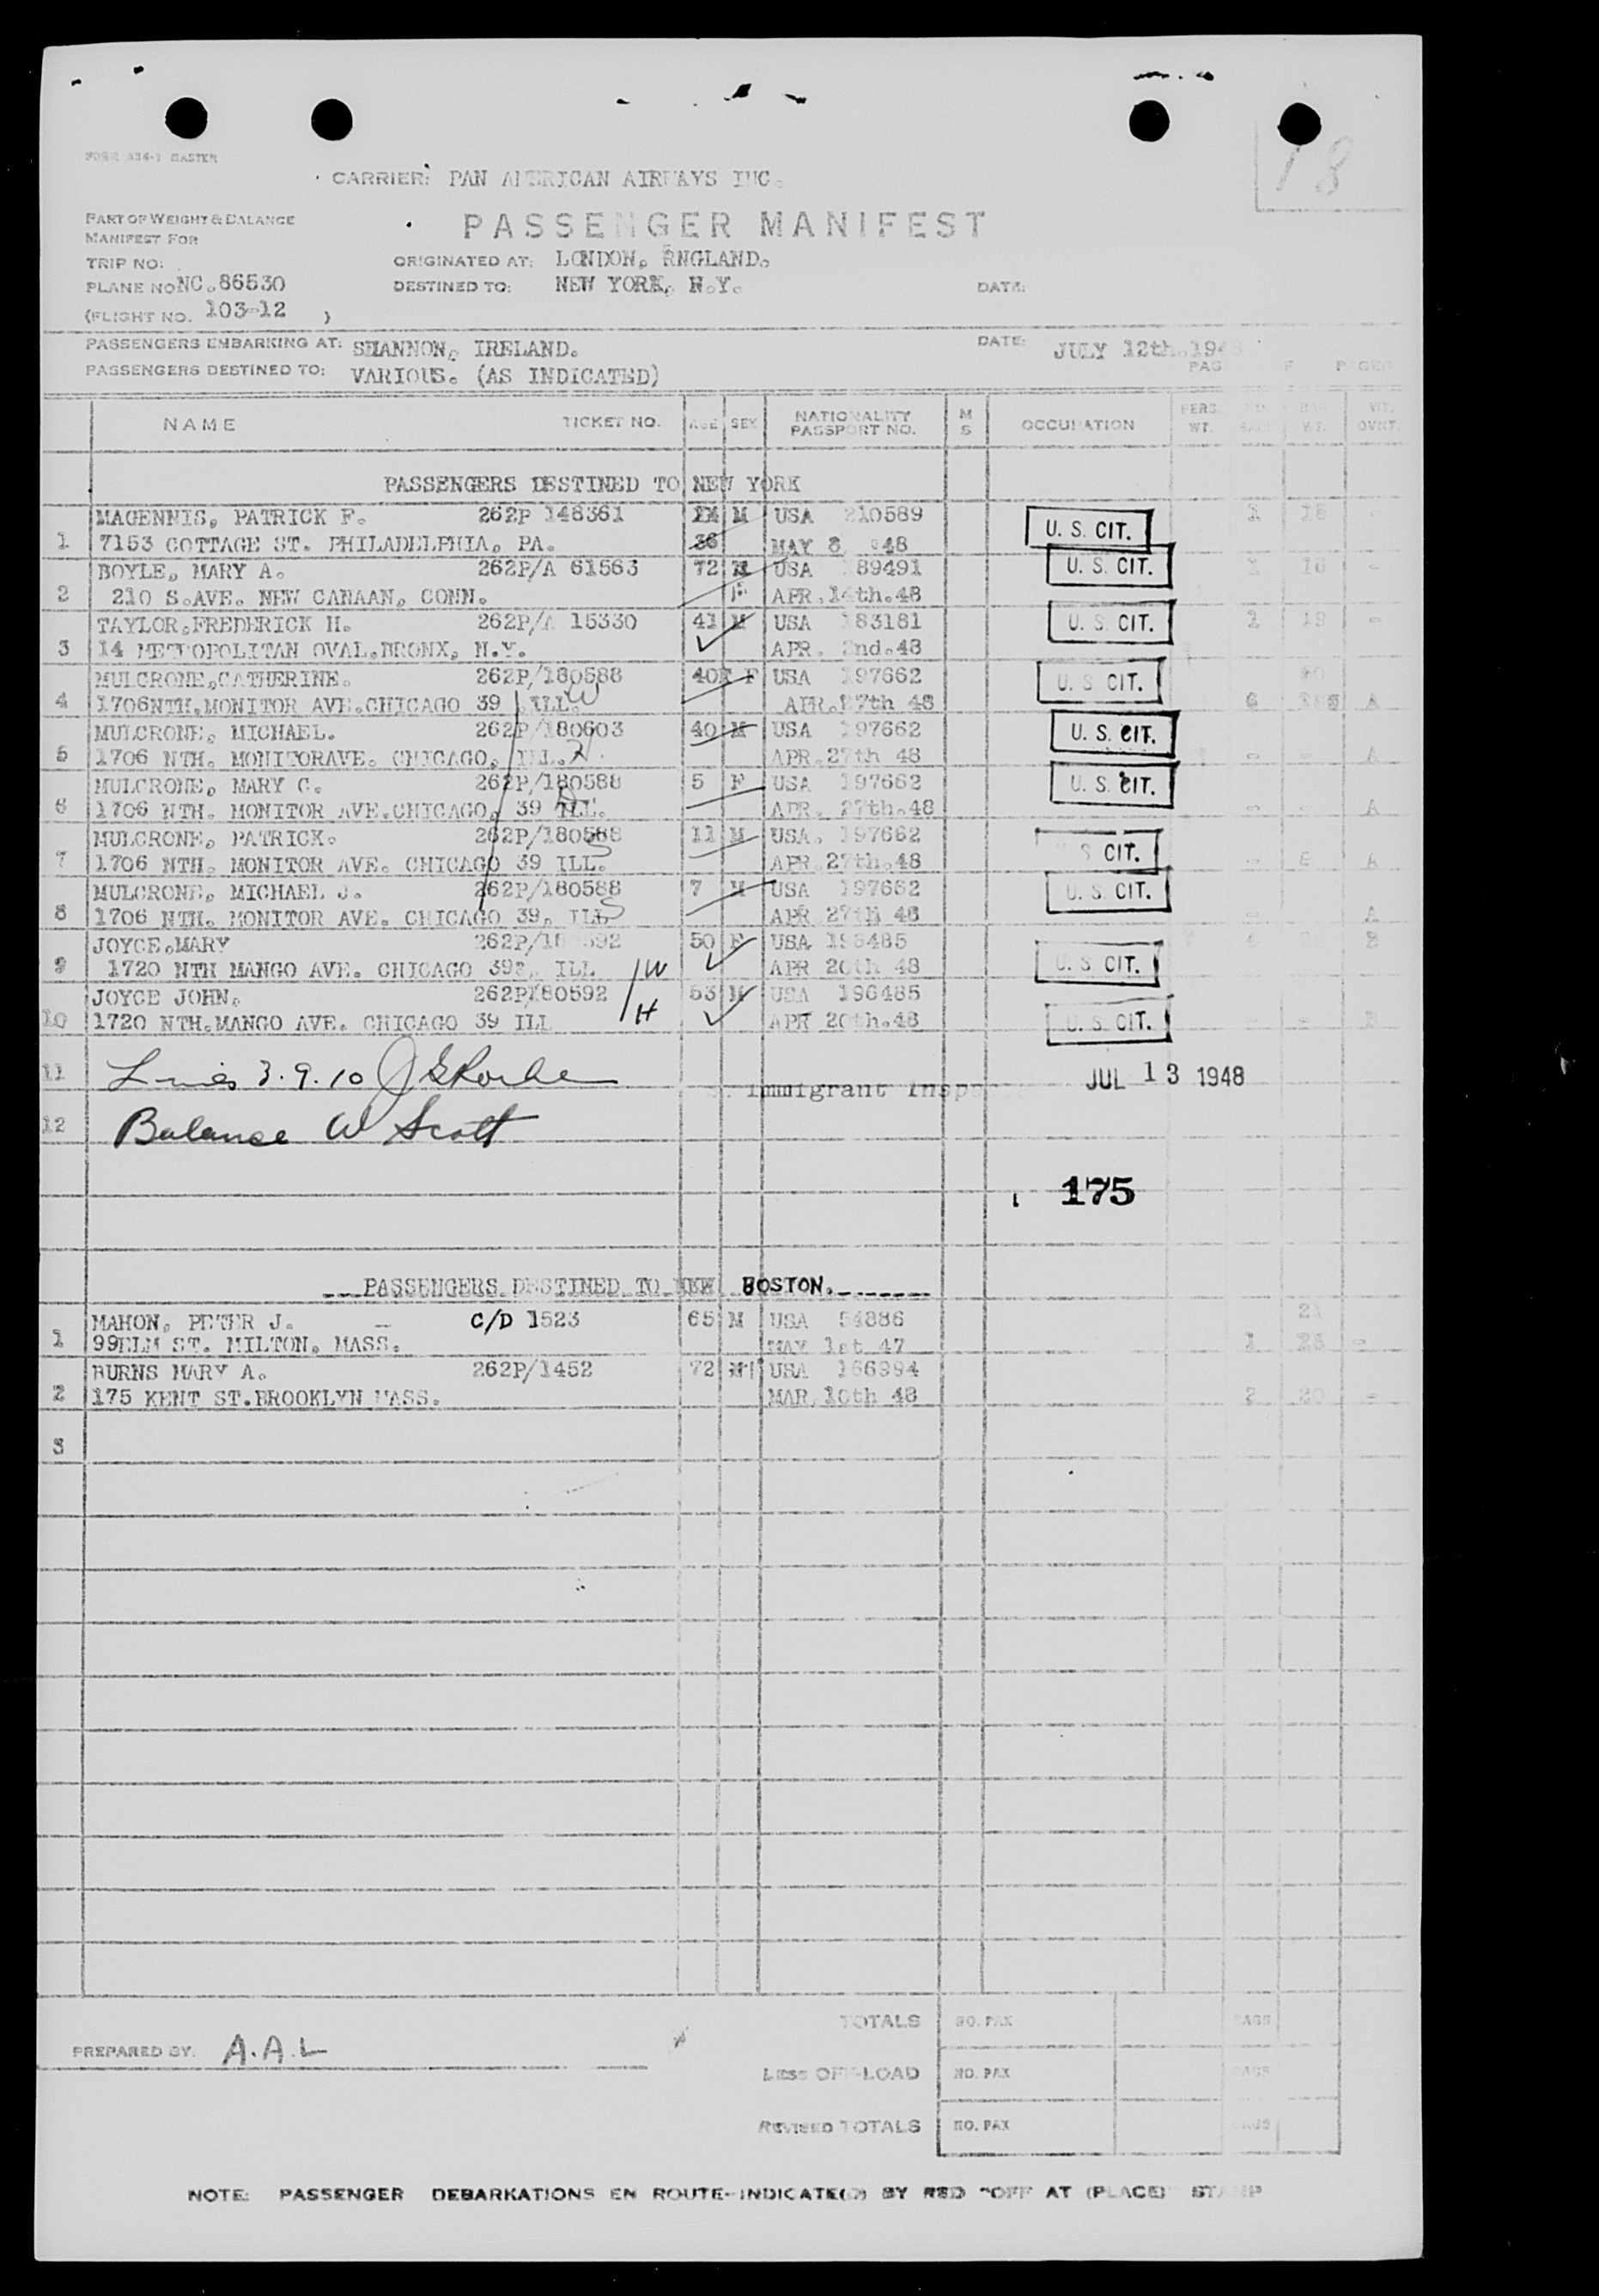 FORM 434-1 MASTER
18
CARRIER: PAN AMERICAN AIRWAYS INC.
PART OF WEIGHT & BALANCE
MANIFEST FOR
PASSENGER MANIFEST
TRIP NO:
ORIGINATED AT: LONDON, ENGLAND.
PLANE NO NC.86530
DESTINED TO: NEW YORK, N.Y.
DATE:
(FLIGHT NO. 103-12 )
PASSENGERS EMBARKING AT: SHANNON, IRELAND.
DATE: JULY 12th.194
PASSENGERS DESTINED TO: VARIOUS. (AS INDICATED)
NAME TICKET NO. AGE SEX NATIONALITY PASSPORT NO. M S OCCUPATION PERS. WT.
PASSENGERS DESTINED TO NEW YORK
MAGENNIS, PATRICK F. 262P 148361 M USA 210589 1 18 -
1 7153 COTTAGE ST. PHILADELPHIA, PA. 36 MAY 8 48 U.S. CIT.
BOYLE, MARY A. 262P/A 61563 72 M USA 89491 U.S. CIT.
2 210 S.AVE. NEW CANAAN, CONN. F APR.14th.48
TAYLOR,FREDERICK H. 262P/A 15330 41 M USA 183181 U.S. CIT. 1 19 -
3 14 METROPOLITAN OVAL,BRONX, N.Y. APR. 2nd.48
MULCRONE,CATHERINE. 262P/180588 40 F USA 197662 U.S. CIT.
4 1706NTH.MONITOR AVE.CHICAGO 39 ILL. W APR.27th 48 A
MULCRONE, MICHAEL. 262P/180603 40 M USA 197662 U.S. CIT.
5 1706 NTH. MONITORAVE. CHICAGO, ILL. H APR.27th 48 - - A
MULCRONE, MARY C. 262P/180588 5 F USA 197662 U.S. CIT.
6 1706 NTH. MONITOR AVE.CHICAGO, 39 ILL. D APR. 27th.48 - - A
MULCRONE, PATRICK. 262P/180588 11 M USA. 197662
7 1706 NTH. MONITOR AVE. CHICAGO 39 ILL. S APR.27th.48 S CIT. A
MULCRONE, MICHAEL J. 262P/180588 7 M USA 197662 U.S. CIT.
8 1706 NTH. MONITOR AVE. CHICAGO 39, ILL S APR 27th 48 A
JOYCE,MARY 262P/18 592 50 F USA 196485
9 1720 NTH MANGO AVE. CHICAGO 39 ILL W APR 20th 48 U.S. CIT.
JOYCE JOHN. 262P/180592 53 M USA 196485
10 1720 NTH.MANGO AVE. CHICAGO 39 ILL H APR 20th.48 U.S. CIT.
11 Lines 3.9.10 Immigrant Insp JUL 13 1948
12 Balance W Scott
175
PASSENGERS DESTINED TO NEW BOSTON.
MAHON, PETER J. - C/D 1523 65 M USA 54886 21
1 99ELM ST. MILTON, MASS. MAY 1st 47 1 23 -
BURNS MARY A. 262P/1452 72 USA 166994
2 175 KENT ST.BROOKLYN MASS. MAR.10th 48 2 20 -
3
TOTALS NO. PAX BAGS
PREPARED BY. A.A.L
LESS OFF-LOAD NO. PAX BAGS
REVISED TOTALS NO. PAX BAGS
NOTE: PASSENGER DEBARKATIONS EN ROUTE-INDICATE(D) BY RED "OFF AT (PLACE)" STAMP